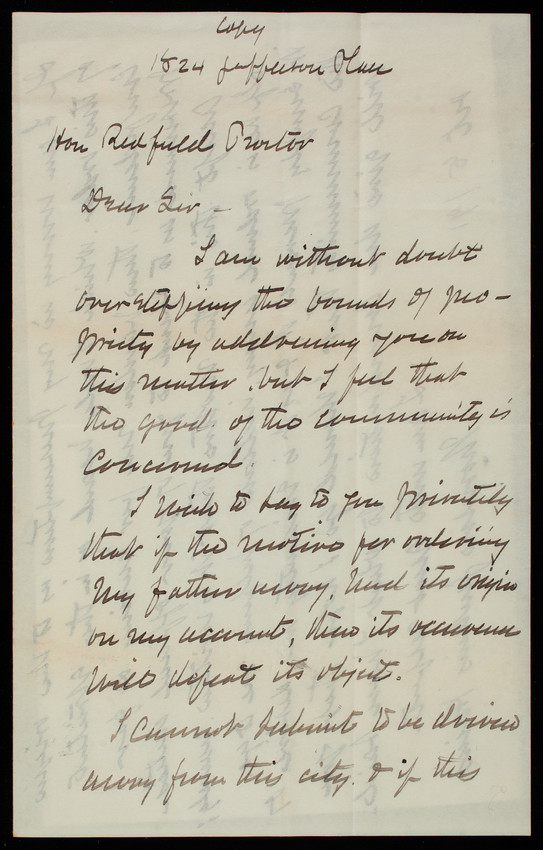 Copy
1824 Jefferson Place
Hon Redfield Proctor
Dear Sir –
I am without doubt
overstepping the bounds of pro-
priety by addressing you on
this matter, but I feel that
the good of the community is
concerned.
I wish to say to you privately
that if the motive for ordering
my father away, had its origin
on my account, then its occurence
will defeat its object.
I cannot submit to be driven
away from this city. & if this